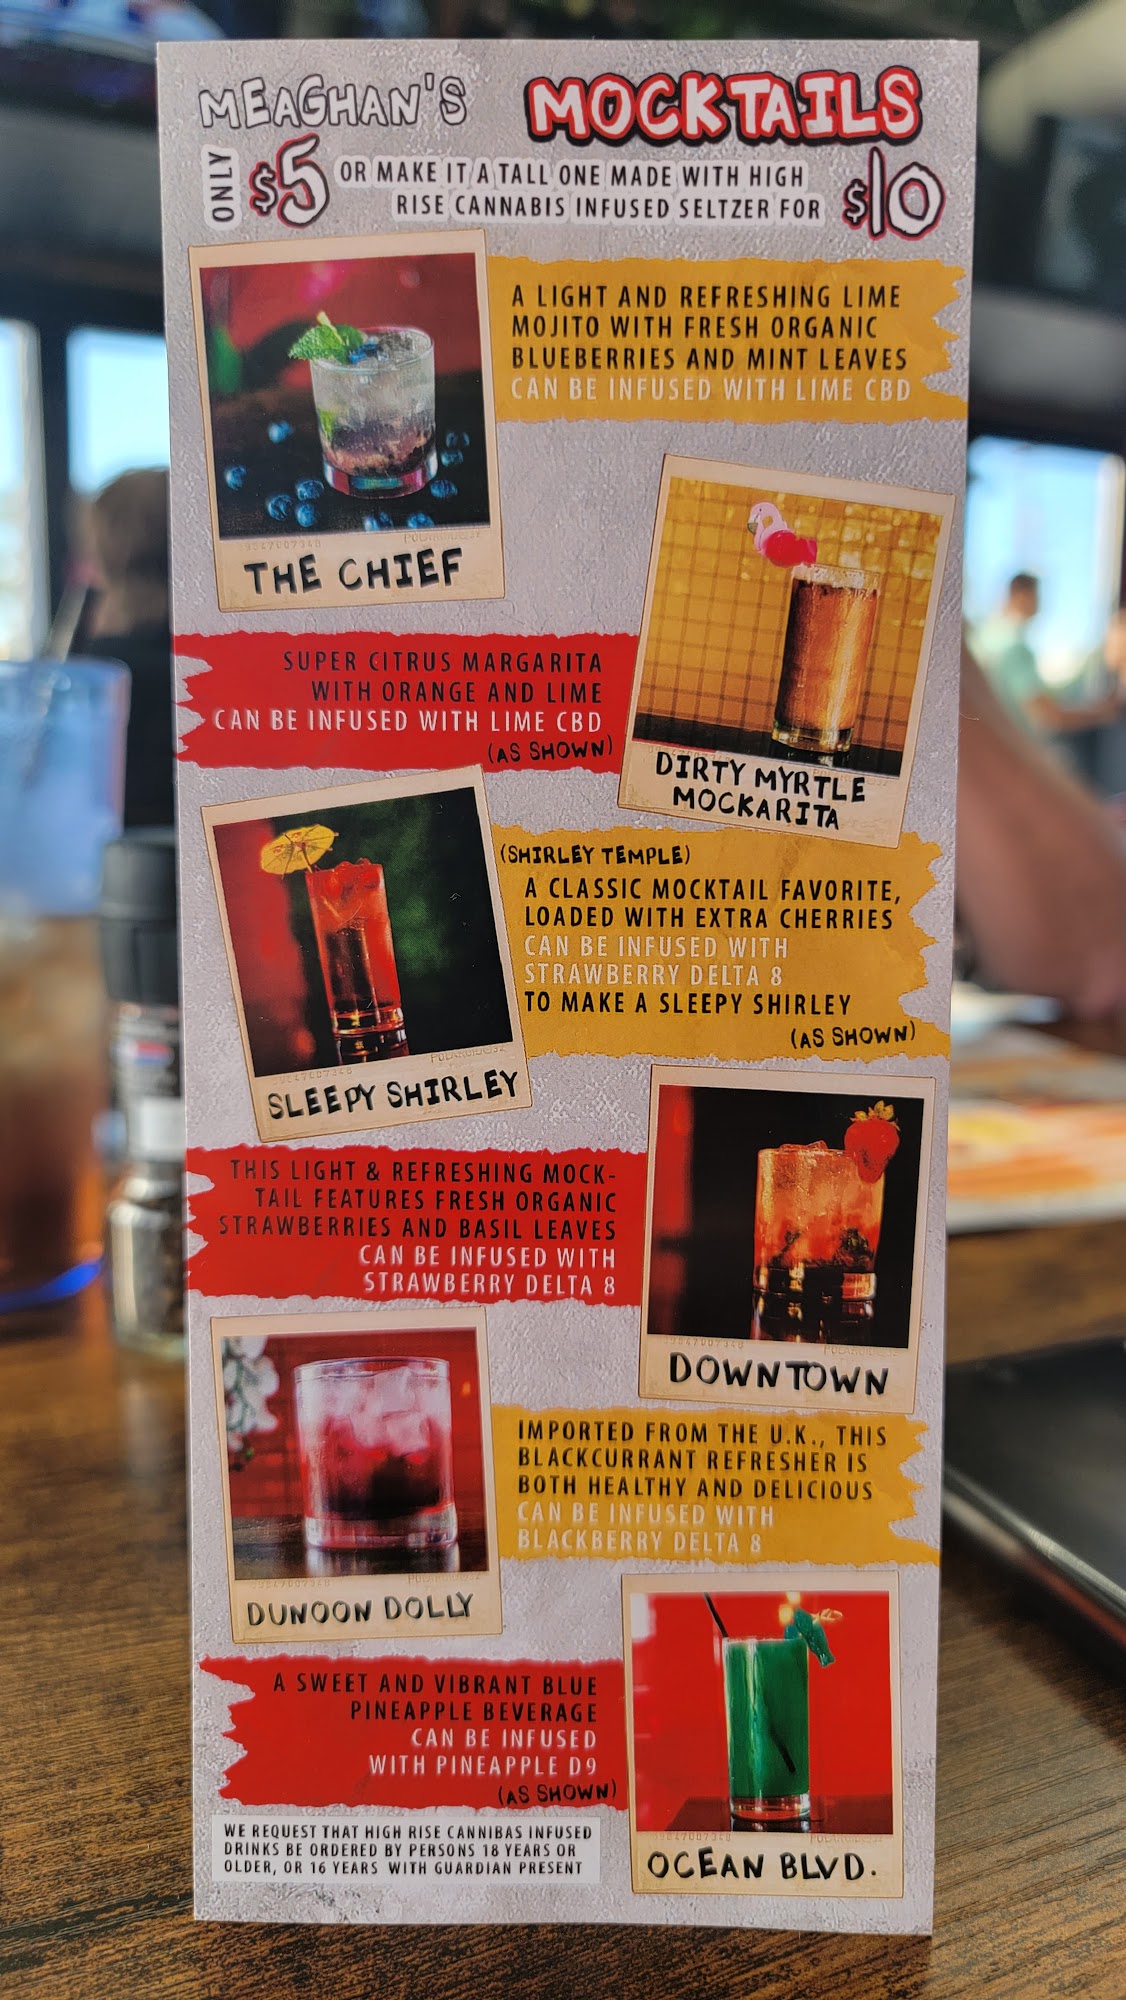 MEAGHAN'S MOCKTAILS
ONLY $5 OR MAKE IT A TALL ONE MADE WITH HIGH
RISE CANNABIS INFUSED SELTZER FOR $10
A LIGHT AND REFRESHING LIME
MOJITO WITH FRESH ORGANIC
BLUEBERRIES AND MINT LEAVES
CAN BE INFUSED WITH LIME CBD
THE CHIEF
SUPER CITRUS MARGARITA
WITH ORANGE AND LIME
CAN BE INFUSED WITH LIME CBD
(AS SHOWN)
DIRTY MYRTLE
MOCKARITA
(SHIRLEY TEMPLE)
A CLASSIC MOCKTAIL FAVORITE,
LOADED WITH EXTRA CHERRIES
CAN BE INFUSED WITH
STRAWBERRY DELTA 8
TO MAKE A SLEEPY SHIRLEY
(AS SHOWN)
SLEEPY SHIRLEY
THIS LIGHT & REFRESHING MOCK-
TAIL FEATURES FRESH ORGANIC
STRAWBERRIES AND BASIL LEAVES
CAN BE INFUSED WITH
STRAWBERRY DELTA 8
DOWNTOWN
IMPORTED FROM THE U.K., THIS
BLACKCURRANT REFRESHER IS
BOTH HEALTHY AND DELICIOUS
CAN BE INFUSED WITH
BLACKBERRY DELTA 8
DUNOON DOLLY
A SWEET AND VIBRANT BLUE
PINEAPPLE BEVERAGE
CAN BE INFUSED
WITH PINEAPPLE D9
(AS SHOWN)
OCEAN BLVD.
WE REQUEST THAT HIGH RISE CANNIBAS INFUSED
DRINKS BE ORDERED BY PERSONS 18 YEARS OR
OLDER, OR 16 YEARS WITH GUARDIAN PRESENT